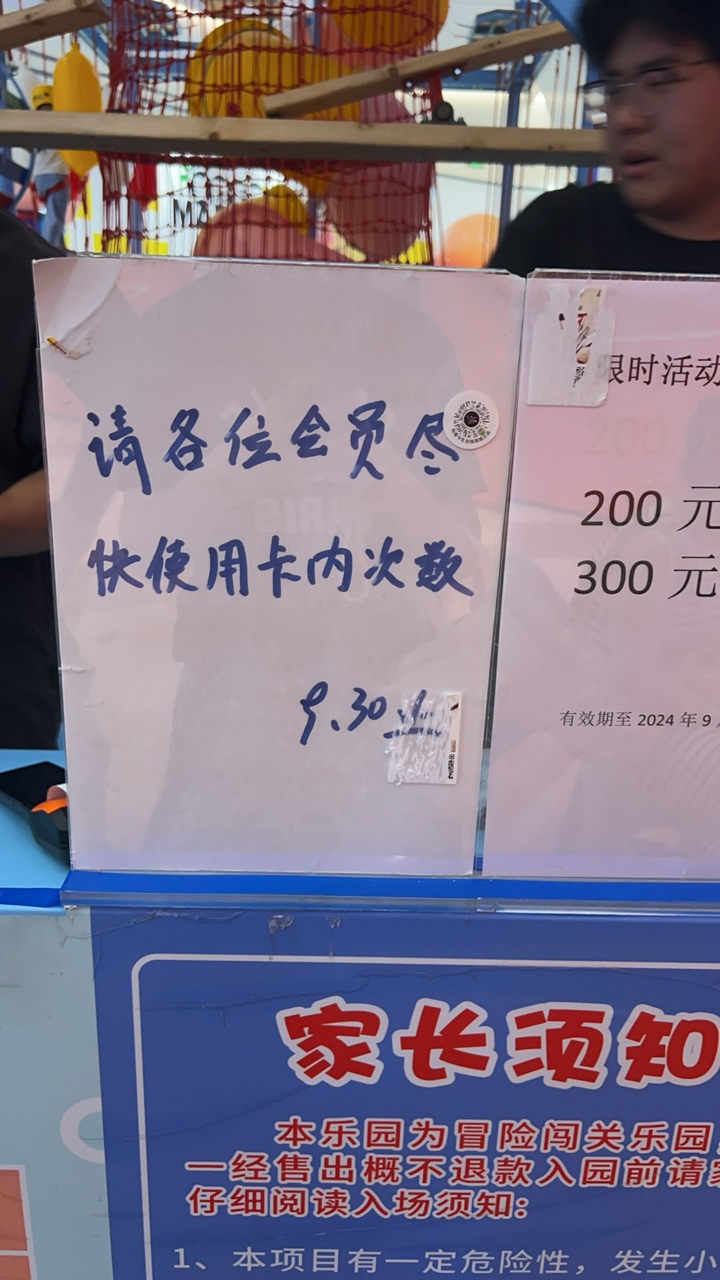 请各位会员尽
快使用卡内次数
9.30
限时活动
200 元
300 元
有效期至 2024 年 9
家长须知
本乐园为冒险闯关乐园
一经售出概不退款入园前请家
仔细阅读入场须知:
1、本项目有一定危险性，发生小